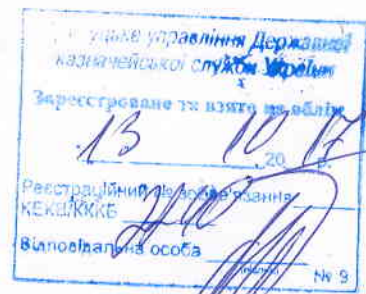 управління Державної
казначейської служби України
Зареєстровано та взято на облік
13 10 20 17 р.
Реєстраційний № зобов'язання
КЕКВ/ККБ 2240
Відповідальна особа
(підпис) № 9